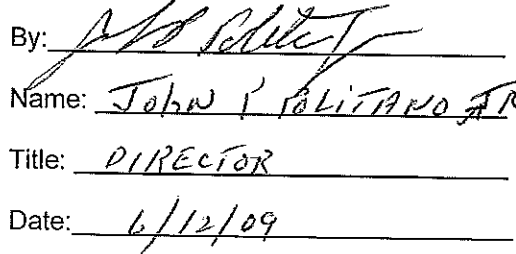 By:
Name: John P Politano JR
Title: DIRECTOR
Date: 6/12/09